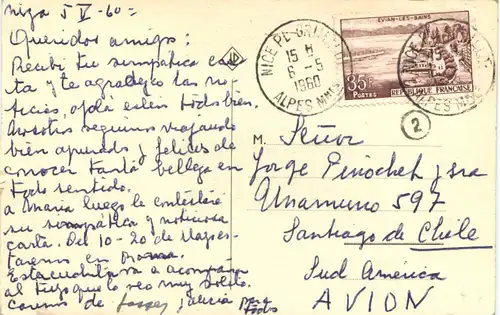 Niza 5 V -60=
Queridos amigos:
Recibí tu simpática car-
ta y te agradezco las no-
ticias, ojalá estén todos bien.
Nosotros seguimos viajando
bien apurados y felices de
conocer tanta belleza en
todo sentido.
A María luego le contestaré
su simpática y noticiosa
carta. Del 10-20 de Mayo es-
taremos en
Esta
al tuyo que lo veo muy
Carinos de y Alicia para
todos
NICE PL. GRIMALDI
15 H
6 - 5
1960
ALPES MMES
EVIAN-LES-BAINS
35F
POSTES
REPUBLIQUE FRANÇAISE
2
M.
Señor
Jorge Pinochet y sra
Unamuno 597
Santiago de Chile
Sud América
AVION